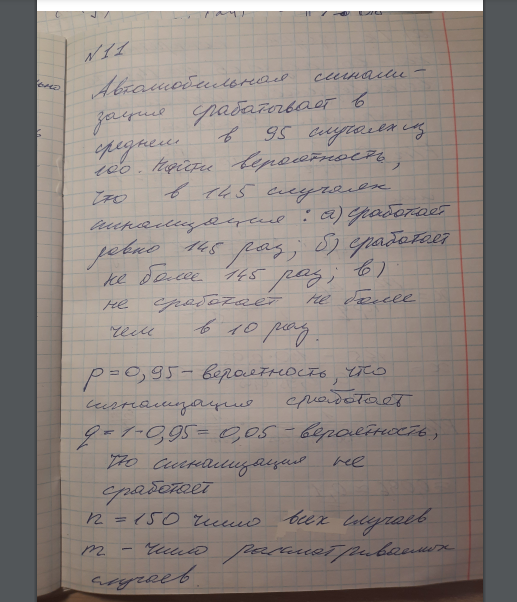 N11
Автомобильная сигнали-
зация срабатывает в
среднем в 95 случаях из
100. Найти вероятность,
что в 145 случаях
сигнализация: а) сработает
равно 145 раз; б) сработает
не более 145 раз; в)
не сработает не более
чем в 10 раз.
p = 0,95 – вероятность, что
сигнализация сработает
q = 1-0,95 = 0,05 – вероятность,
что сигнализация не
сработает
n = 150 число всех случаев
m – число рассматриваемых
случаев.